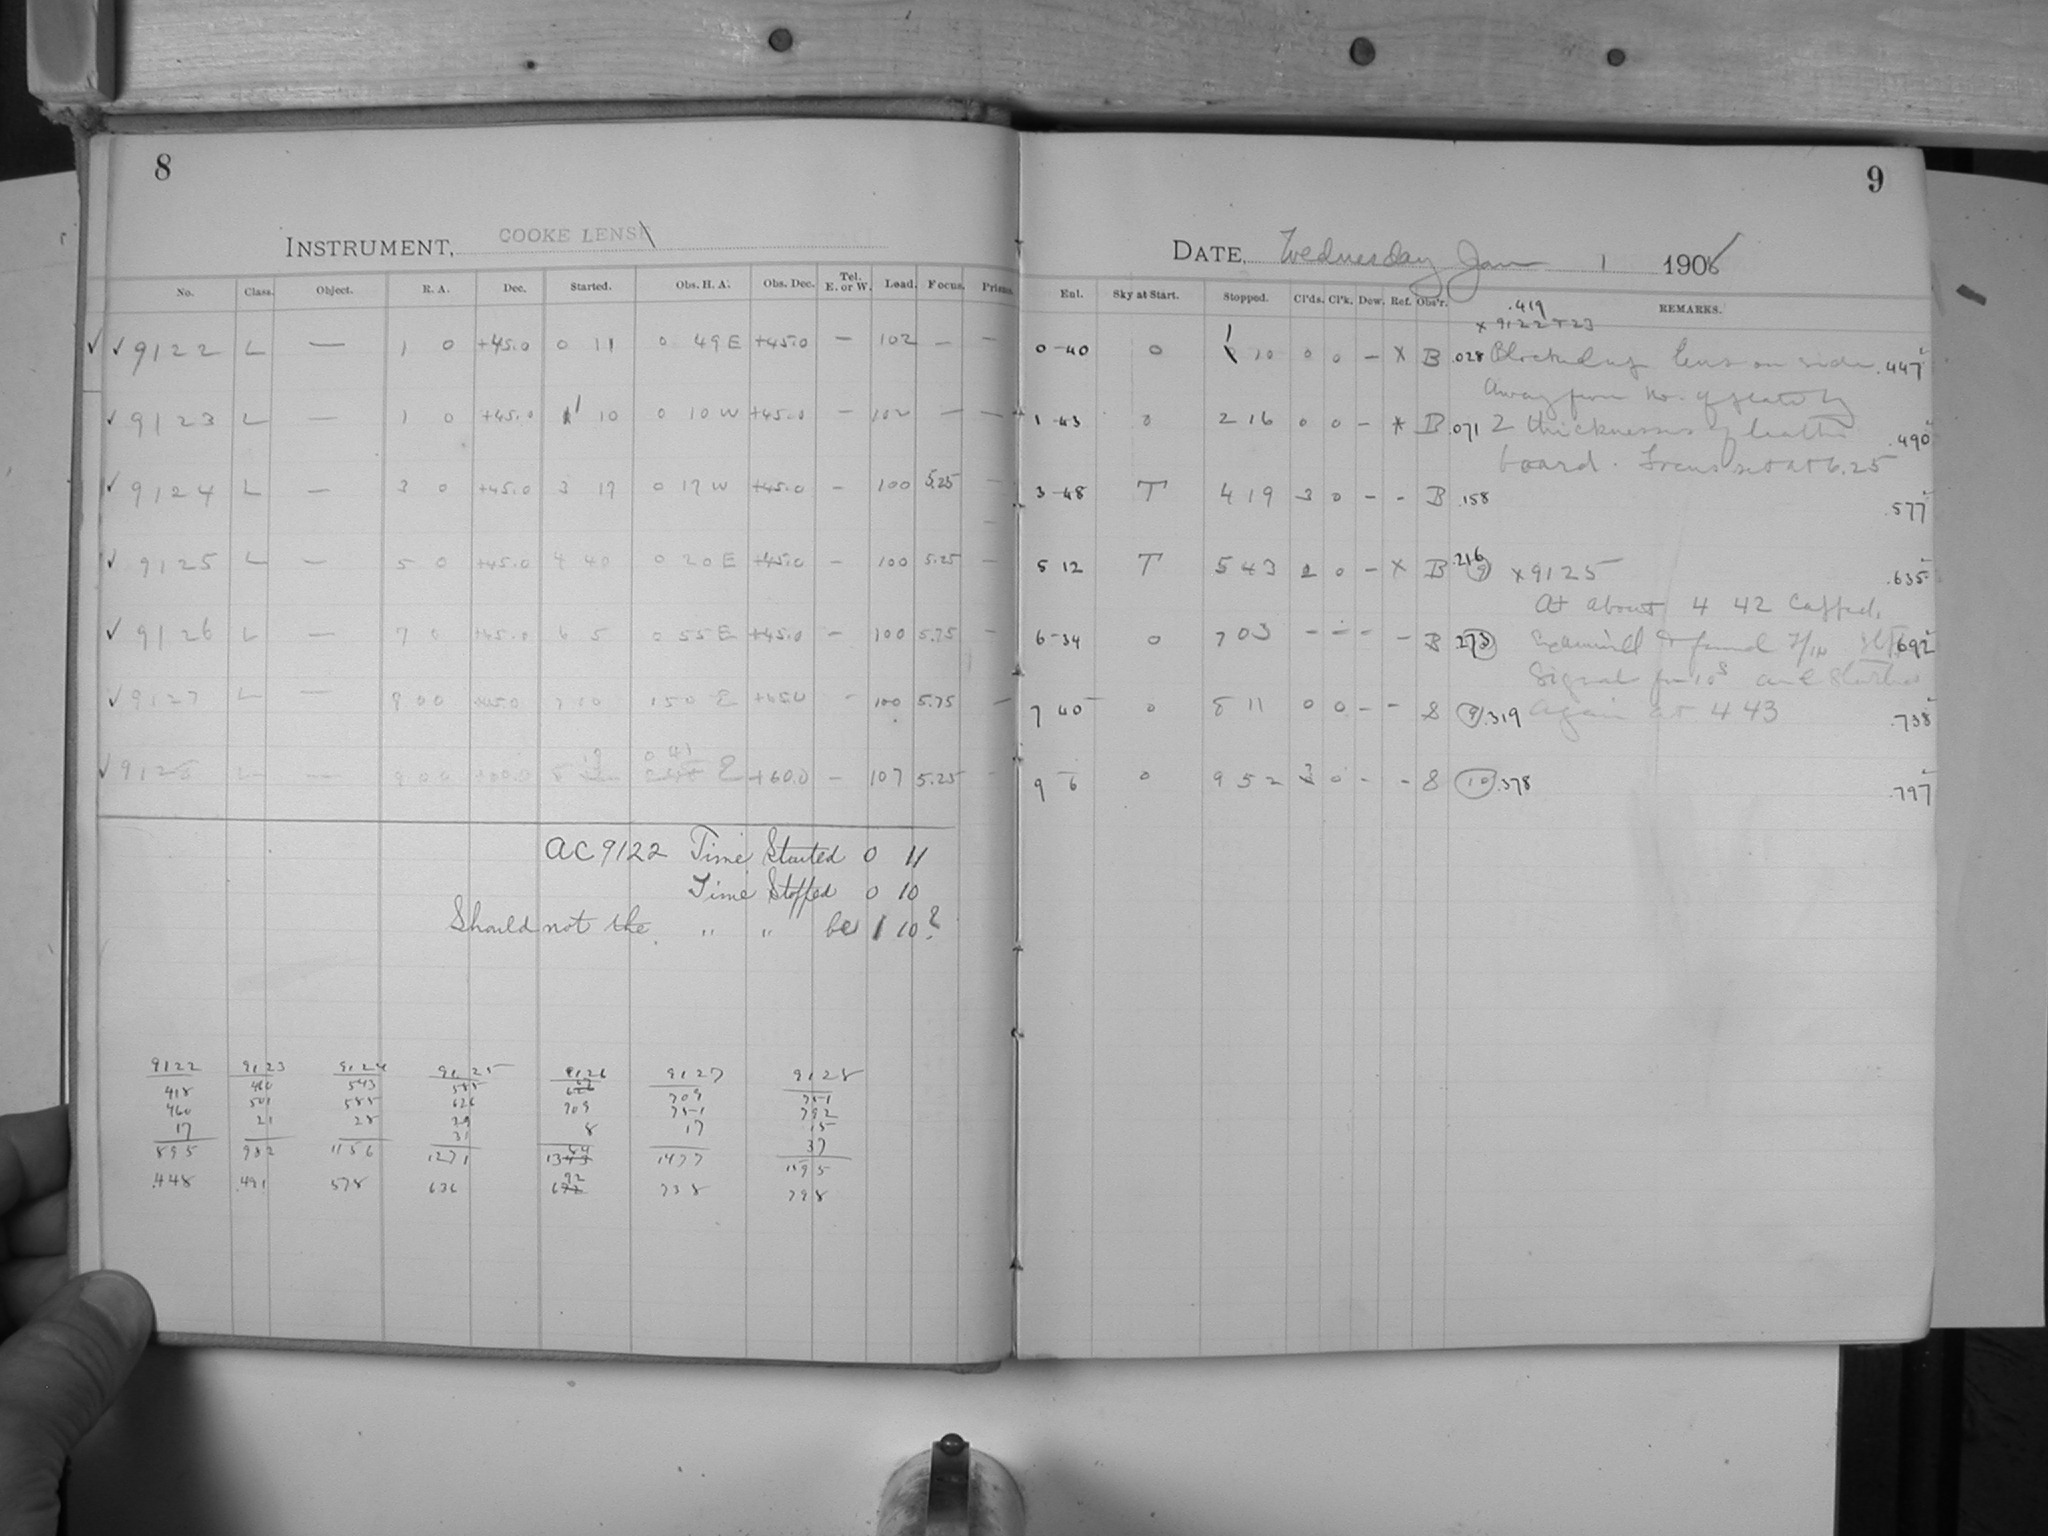 8
INSTRUMENT, COOKE LENS
No. Class. Object. R. A. Dec. Started. Obs. H. A. Obs. Dec. Tel. E. or W. Load. Focus. Prisms.
✓ ✓ 9122 L — 1 0 +45.0 0 11 0 49 E +45.0 — 102 — —
✓ 9123 L — 1 0 +45.0 1 10 0 10 W +45.0 — 102 — —
✓ 9124 L — 3 0 +45.0 3 17 0 17 W +45.0 — 100 5.25 —
✓ 9125 L — 5 0 +45.0 4 40 0 20 E +45.0 — 100 5.25 —
✓ 9126 L — 7 0 +45.0 6 5 0 55 E +45.0 — 100 5.75 —
✓ 9127 L — 9 00 +45.0 7 10 1 50 E +45.0 - 100 5.75 —
✓ 9128 L — 9 00 +60.0 8 19 0 41 E +60.0 — 107 5.25 -
AC 9122 Time Started 0 11
Time Stopped 0 10
Should not the " " be 1 10?
9122 9123 9124 9125 9126 9127 9128
418 460 543 585 709 751
460 501 585 626 709 751 792
17 21 28 29 8 17 15
31 37
895 982 1156 1271 1477 1595
.448 .491 578 636 692 738 798
9
DATE, Wednesday Jan 1 1906
Enl. Sky at Start. Stopped. Cl'ds. Cl'k. Dew. Ref. Obs'r. REMARKS.
.419
x 9122 + 23
0-40 0 1 10 0 0 - X B .028 Blocked up lens on side .447
away from No. of plate by
1-43 0 2 16 0 0 - * B .071 2 thicknesses of leather .490
board. Focus set at 6.25
3-48 T 4 19 3 0 - - B .158 .577
5 12 T 5 43 2 0 - X B .216 9 x 9125 .635
At about 4 42 Capped,
6-34 0 7 03 - - - - B 273 Examined & found .692
Signal for 10s and Started
7 40 0 8 11 0 0 - - S 9 .319 again at 4 43 .738
9 6 0 9 52 3 0 - - S 10 .378 .797